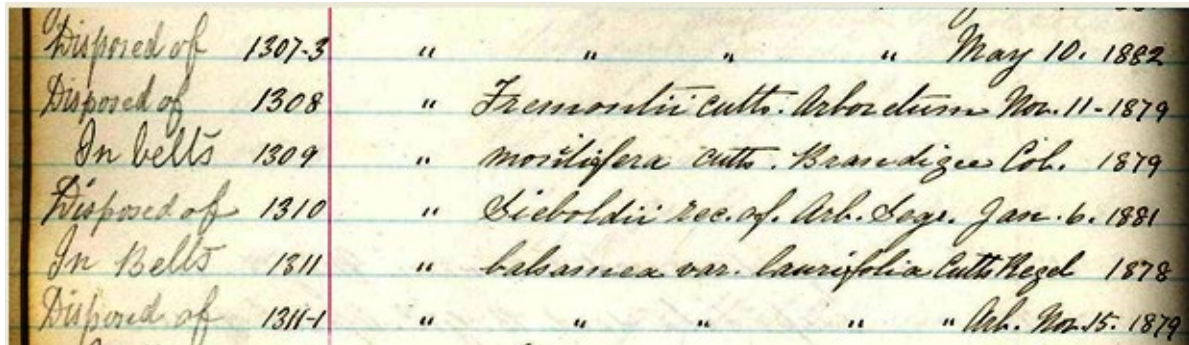 Disposed of 1307-3 " " " " May 10. 1882
Disposed of 1308 " Fremontii cutts. Arboretum Nov. 11-1879
In belts 1309 " monilifera cutts. Brandigee Col. 1879
Disposed of 1310 " Sieboldii rec. of. Arb. Segr. Jan. 6. 1881
In Belts 1311 " balsamea var. laurifolia Cutts Regel 1878
Disposed of 1311-1 " " " " " Arb. Nov. 15. 1879